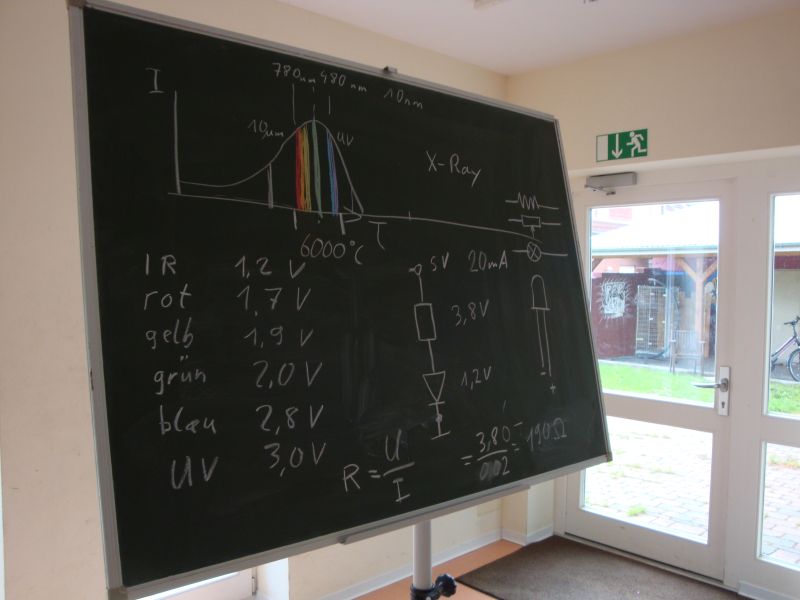 780nm 480 nm 10nm
I
10µm
UV
X-Ray
6000°C
IR 1,2 V
rot 1,7 V
gelb 1,9 V
grün 2,0 V
blau 2,8 V
UV 3,0 V
5V 20mA
3,8V
1,2V
- +
R = U/I = 3,80/0,02 = 190Ω